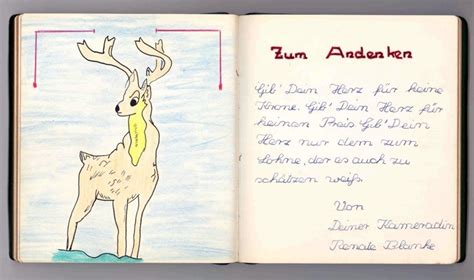 Zum Andenken
Gib' Dein Herz für keine
Krone. Gib' Dein Herz für
keinen Preis Gib' Dein
Herz nur dem zum
Lohne, der es auch zu
schätzen weiß.
Von
Deiner Kameradin
Renate Blanke